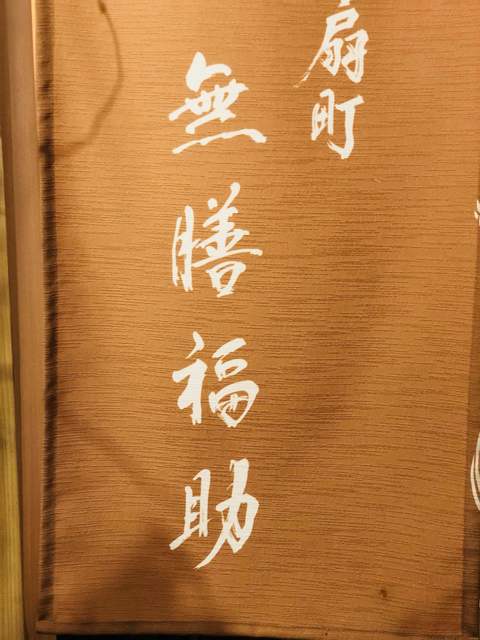 扇町
無膳福助